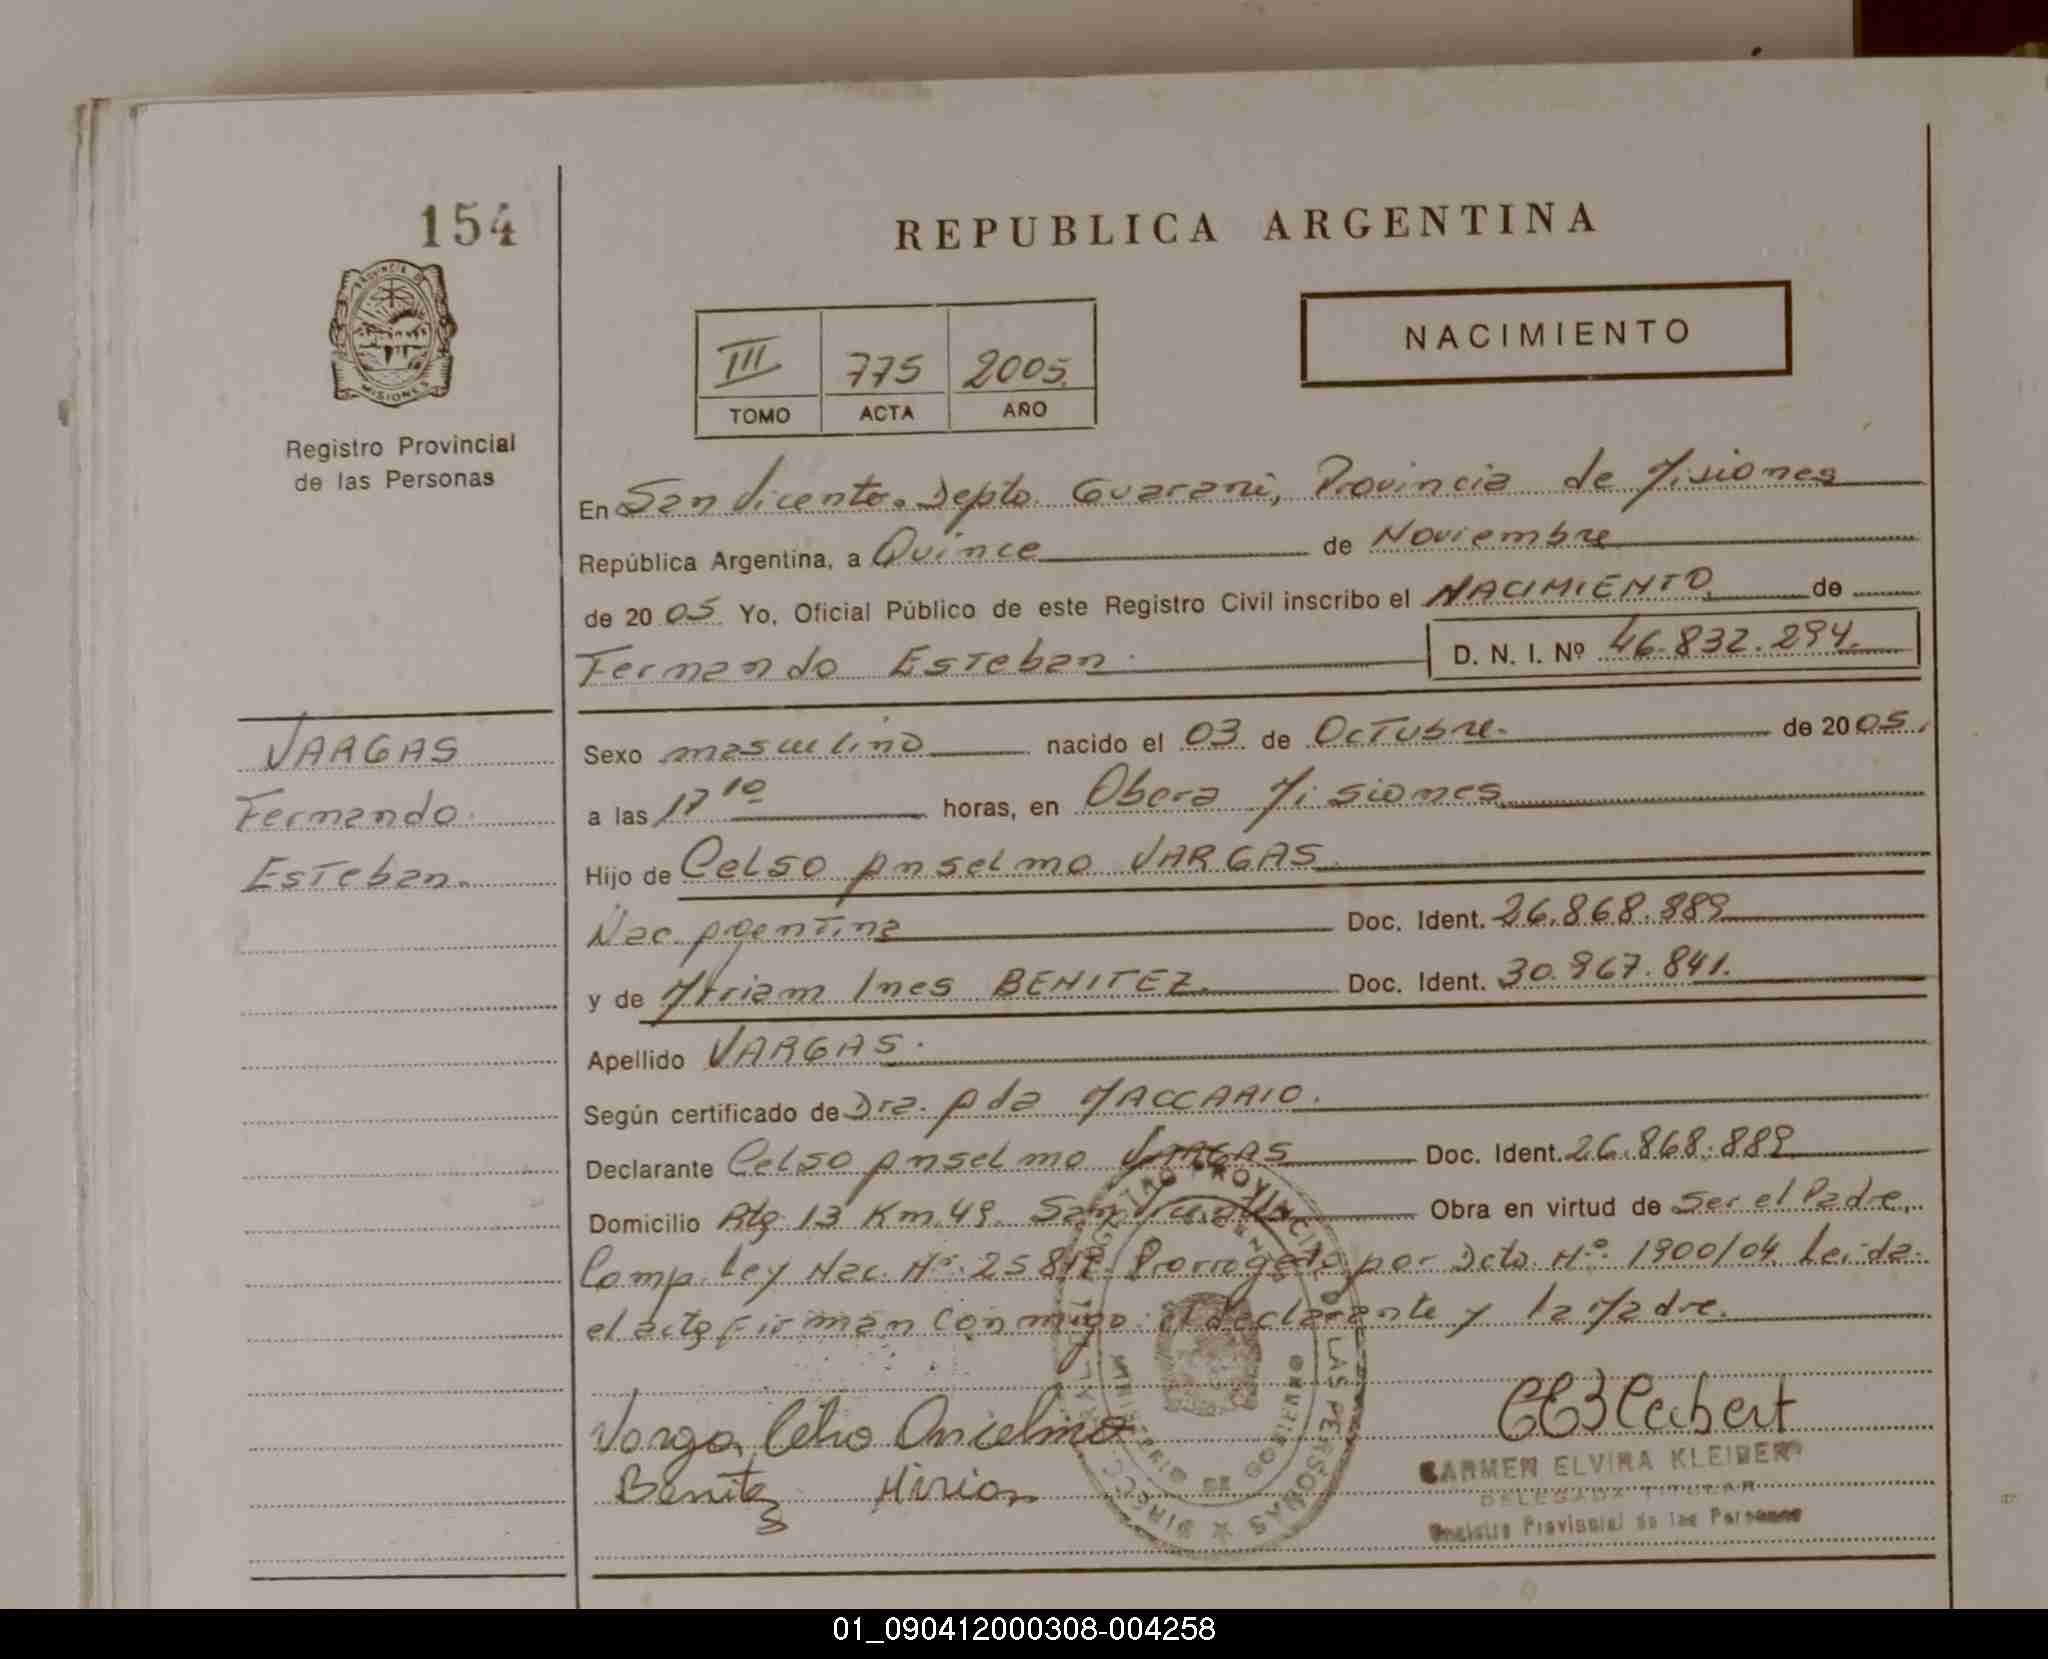 154
REPUBLICA ARGENTINA
PROVINCIA DE
MISIONES
NACIMIENTO
III 775 2005
TOMO ACTA AÑO
Registro Provincial
de las Personas
En San Vicente. Depto. Guarani, Provincia de Misiones
República Argentina, a Quince de Noviembre
de 20 05 Yo, Oficial Público de este Registro Civil inscribo el NACIMIENTO de
Fernando Esteban D. N. I. Nº 46.832.294.
VARGAS
Fernando
Esteban.
Sexo masculino nacido el 03 de Octubre. de 20 05.
a las 17 10 horas, en Obera Misiones
Hijo de Celso Anselmo VARGAS
Nac. Agentina Doc. Ident. 26.868.889
y de Miriam Ines BENITEZ. Doc. Ident. 30.967.841.
Apellido VARGAS.
Según certificado de Dra. Ada MACCARIO.
Declarante Celso Anselmo VARGAS Doc. Ident. 26.868.889
Domicilio Rta 13 Km 49. San Vicente Obra en virtud de Ser el Padre,
Comp. Ley Nac. Nº 25.819. Prorrogado por Dcto. Nº 1900/04. Leida
el acta firman conmigo el declarante y la Madre.
Vargas Celso Anselmo
Benitez Miriam
CARMEN ELVIRA KLEIBERT
DELEGADA TITULAR
Registro Provincial de las Personas
MINISTERIO DE GOBIERNO
01_090412000308-004258